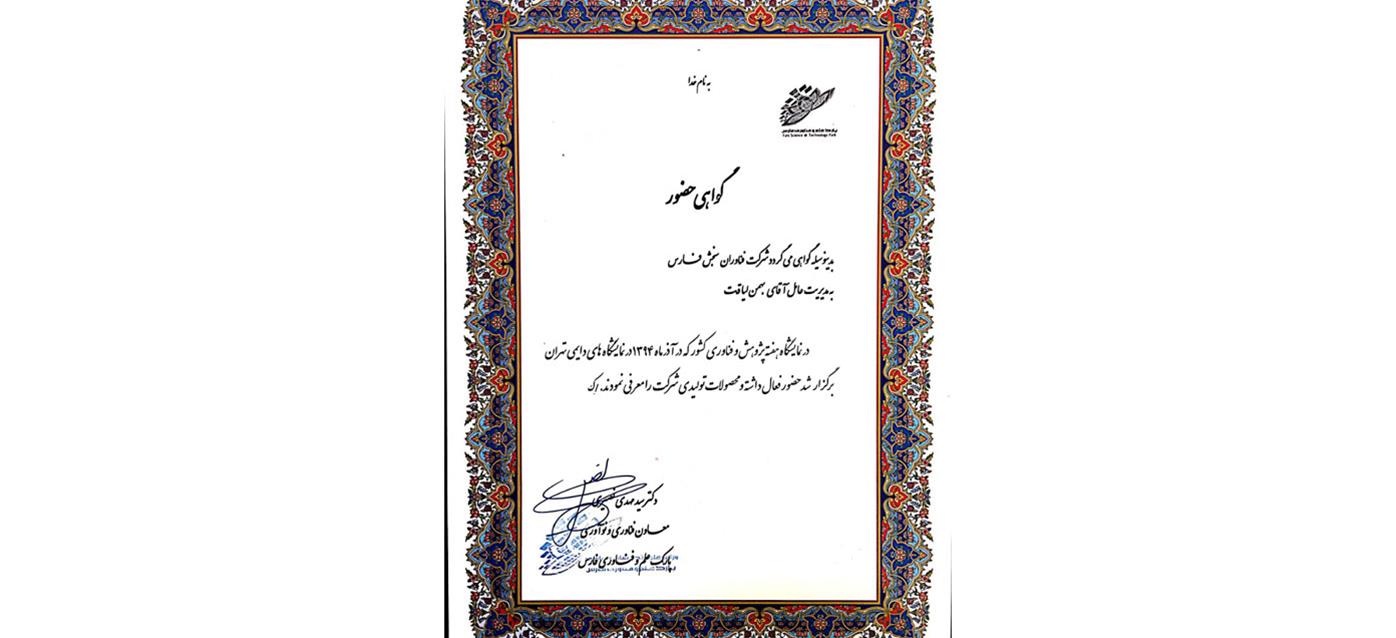 به نام خدا
پارک علم و فناوری فارس
Fars Science & Technology Park
گواهی حضور
بدینوسیله گواهی می گردد شرکت فناوران سنجش فارس
به مدیریت عامل آقای بهمن لیاقت
در نمایشگاه هفته پژوهش و فناوری کشور که در آذر ماه ۱۳۹۴ در نمایشگاه های دایمی تهران
برگزار شد حضور فعال داشته و محصولات تولیدی شرکت را معرفی نمودند.
دکتر سید مهدی
معاون فناوری و نوآوری
پارک علم و فناوری فارس